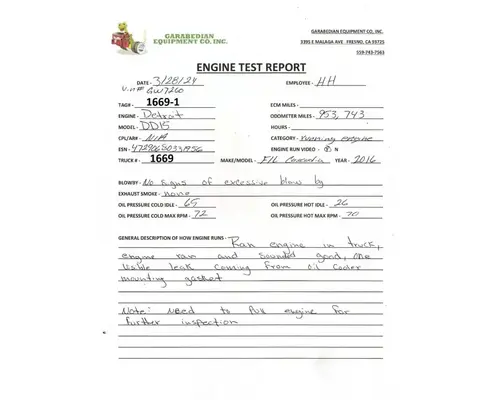 GARABEDIAN
EQUIPMENT CO, INC.
GARABEDIAN EQUIPMENT CO, INC.
3395 E MALAGA AVE - FRESNO, CA 93725
559-743-7563
ENGINE TEST REPORT
DATE - 3/28/24 EMPLOYEE - HH
Vin# GW7260
TAG# - 1669-1 ECM MILES -
ENGINE - Detroit ODOMETER MILES - 953,743
MODEL - DD15 HOURS -
CPL/AR# - N/A CATEGORY - running engine
ESN - 472906S0331956 ENGINE RUN VIDEO - Y N
TRUCK # - 1669 MAKE/MODEL - F/L Cascadia YEAR - 2016
BLOWBY - No signs of excessive blow by
EXHAUST SMOKE - none
OIL PRESSURE COLD IDLE - 65 OIL PRESSURE HOT IDLE - 26
OIL PRESSURE COLD MAX RPM - 72 OIL PRESSURE HOT MAX RPM - 70
GENERAL DESCRIPTION OF HOW ENGINE RUNS - Ran engine in truck,
engine ran and sounded good, one
visible leak coming from oil cooler
mounting gasket
Note: Need to pull engine for
further inspection